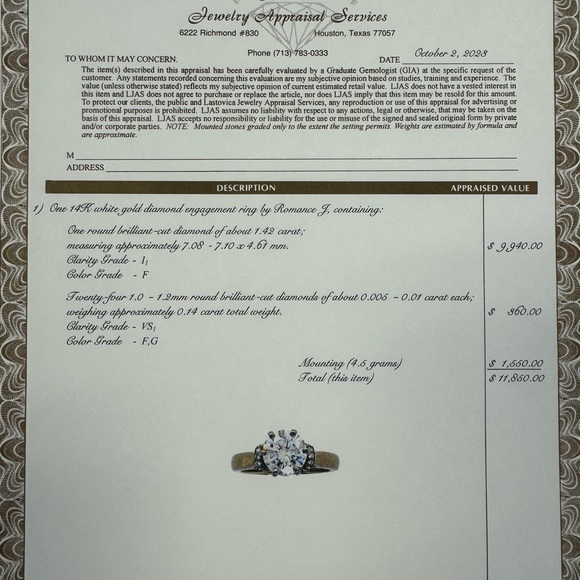 Jewelry Appraisal Services
6222 Richmond #830 Houston, Texas 77057
Phone (713) 783-0333
TO WHOM IT MAY CONCERN. DATE October 2, 2023
The item(s) described in this appraisal has been carefully evaluated by a Graduate Gemologist (GIA) at the specific request of the
customer. Any statements recorded concerning this evaluation are my subjective opinion based on studies, training and experience. The
value (unless otherwise stated) reflects my subjective opinion of current estimated retail value. LJAS does not have a vested interest in
this item and LJAS does not agree to purchase or replace the article, nor does LJAS imply that this item may be resold for this amount.
To protect our clients, the public and Lastovica Jewelry Appraisal Services, any reproduction or use of this appraisal for advertising or
promotional purposes is prohibited. LJAS assumes no liability with respect to any actions, legal or otherwise, that may be taken on the
basis of this appraisal. LJAS accepts no responsibility or liability for the use or misuse of the signed and sealed original form by private
and/or corporate parties. NOTE: Mounted stones graded only to the extent the setting permits. Weights are estimated by formula and
are approximate.
M
ADDRESS
DESCRIPTION APPRAISED VALUE
1) One 14K white gold diamond engagement ring by Romance J, containing:
One round brilliant-cut diamond of about 1.42 carat;
measuring approximately 7.08 - 7.10 x 4.61 mm. $ 9,940.00
Clarity Grade - I1
Color Grade - F
Twenty-four 1.0 - 1.2mm round brilliant-cut diamonds of about 0.005 - 0.01 carat each;
weighing approximately 0.14 carat total weight. $ 360.00
Clarity Grade - VS1
Color Grade - F,G
Mounting (4.5 grams) $ 1,550.00
Total (this item) $ 11,850.00